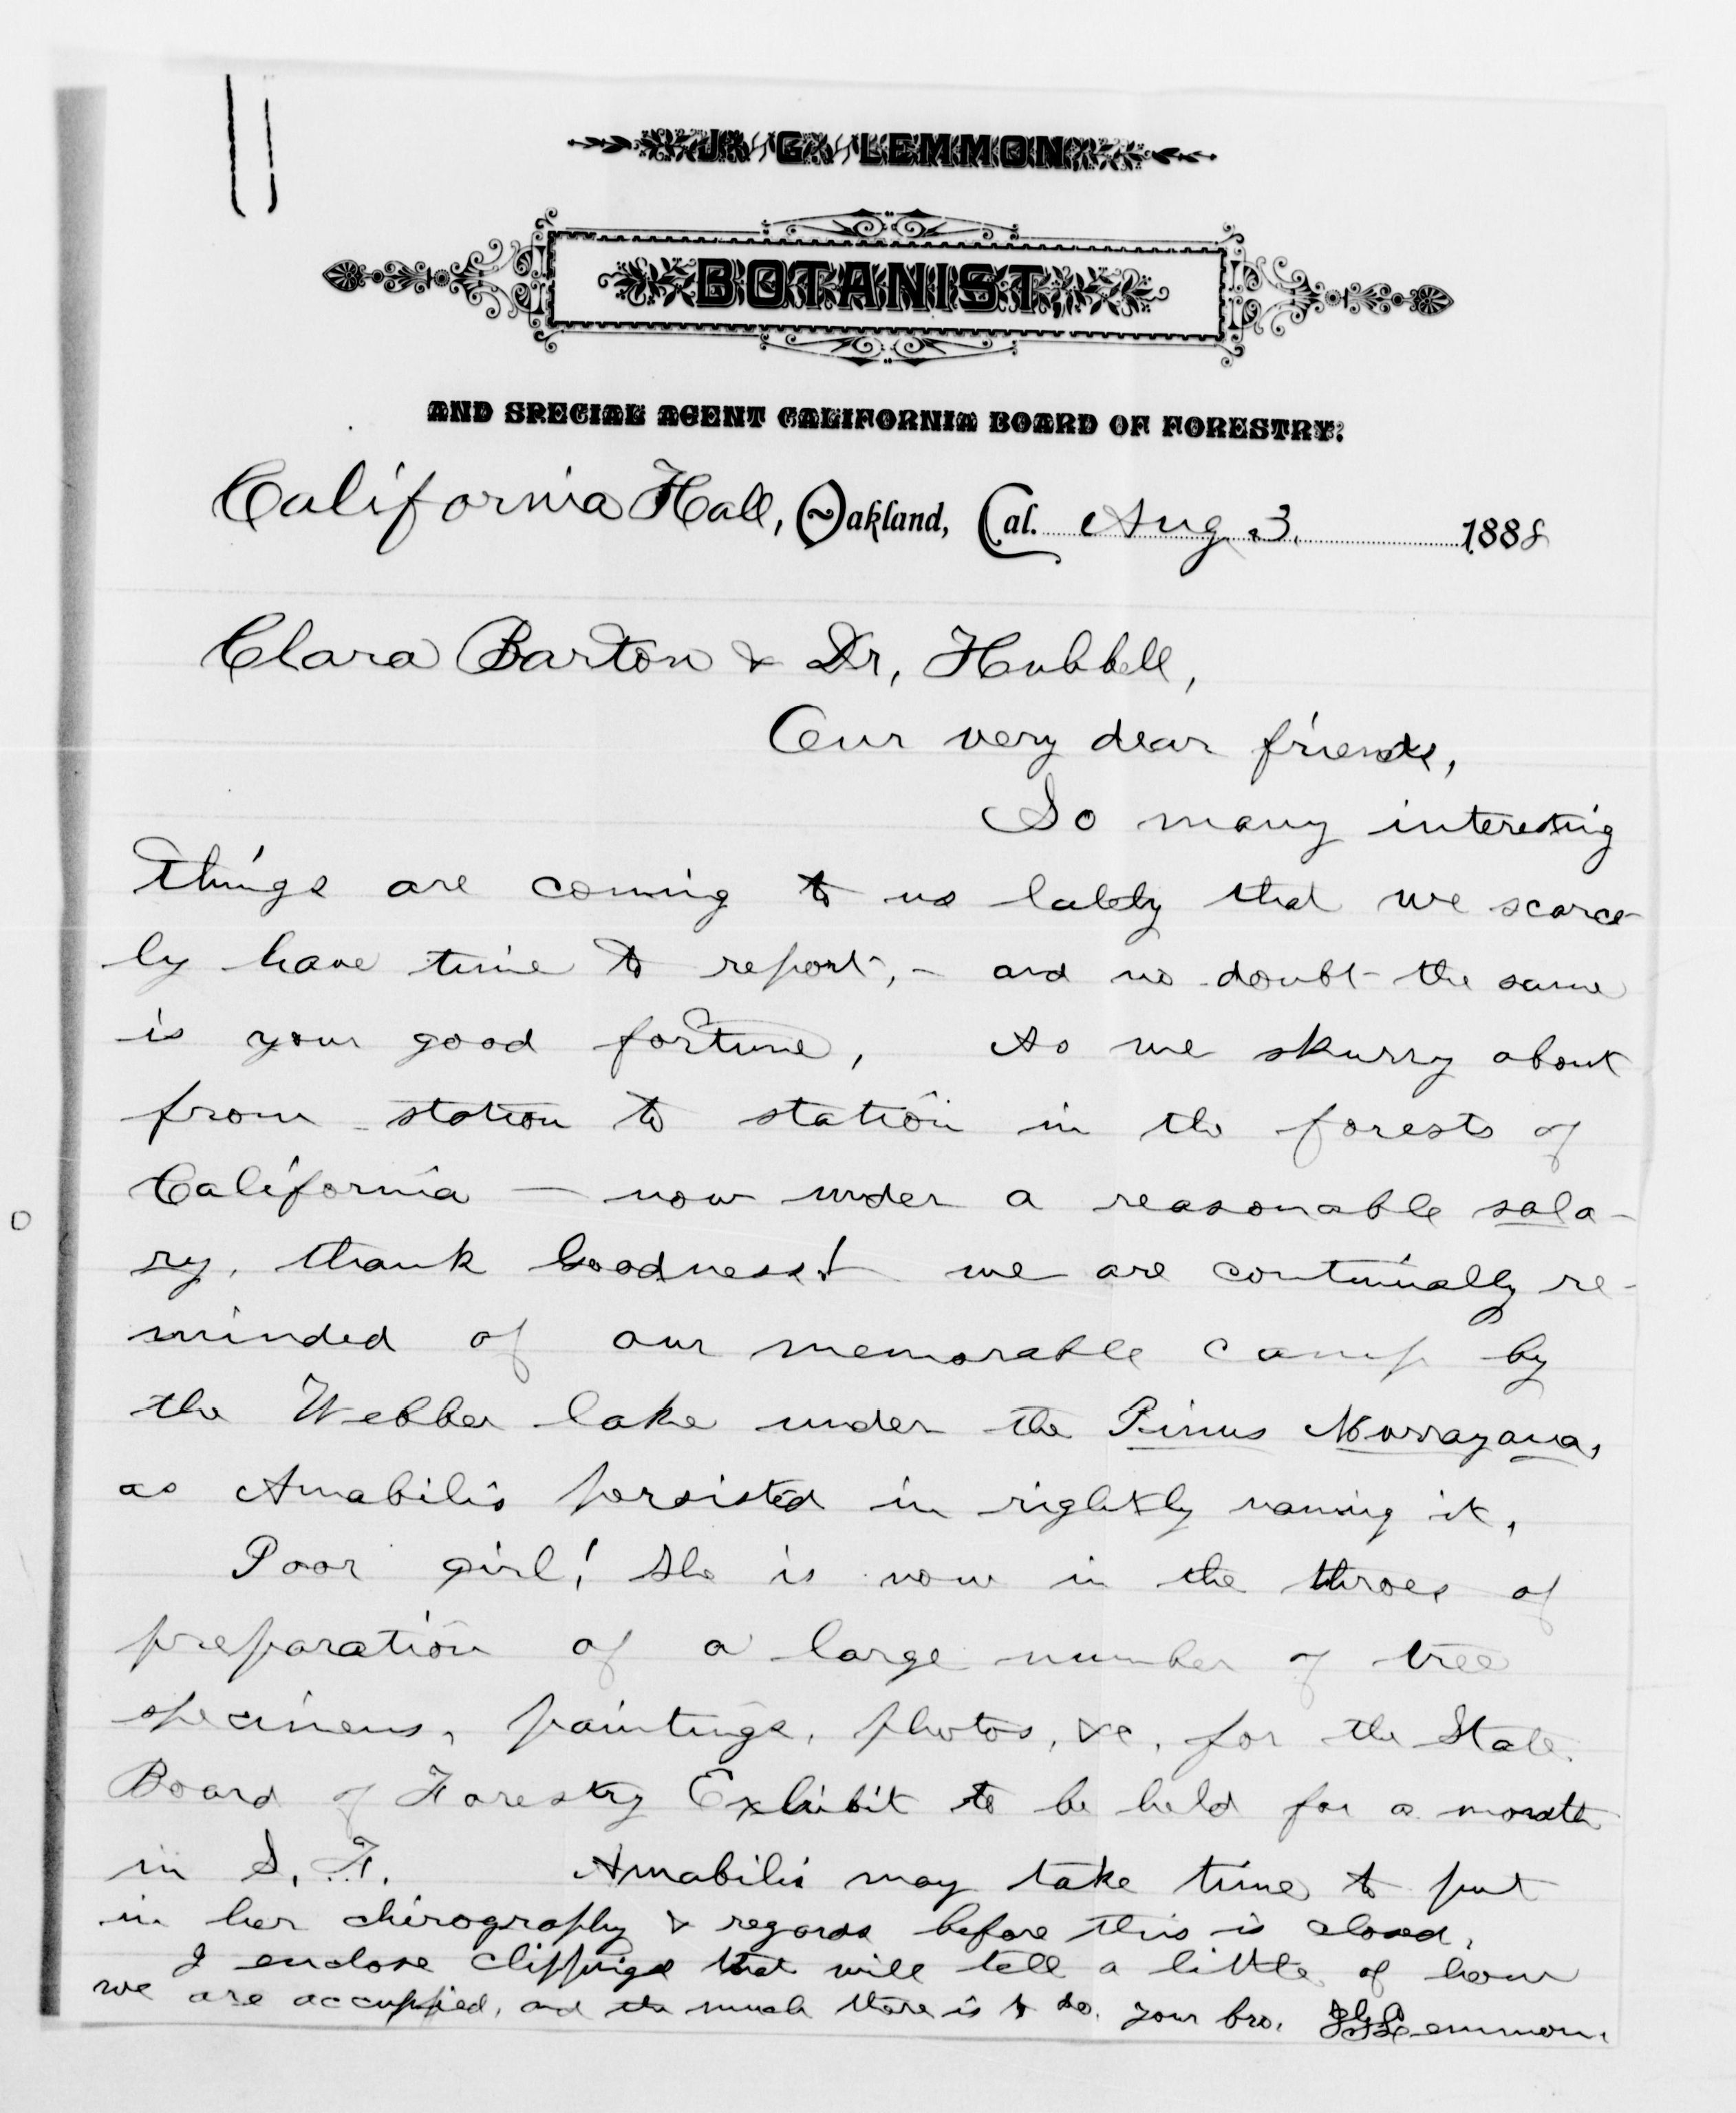 J. G. LEMMON
BOTANIST,
AND SPECIAL AGENT CALIFORNIA BOARD OF FORESTRY.
California Hall, Oakland, Cal. Aug 3. 1888
Clara Barton & Dr, Hubbell,
Our very dear friends,
So many interesting
things are coming to us lately that we scarce-
ly have time to report, - and no doubt the same
is your good fortune, As we skurry about
from station to station in the forests of
California — now under a reasonable sala-
ry, thank Goodness! we are continually re-
minded of our memorable camp by
the Webber lake under the Pinus Murrayana,
as Amabilis persisted in rightly naming it,
Poor girl! She is now in the throes of
preparation of a large number of tree
specimens, paintings, photos, &c, for the State
Board of Forestry Exhibit to be held for a month
in S. F. Amabilis may take time to put
in her chirography & regards before this is closed,
I enclose clippings that will tell a little of how
we are occupied, and the much there is to do. Your bro. JGLemmon.